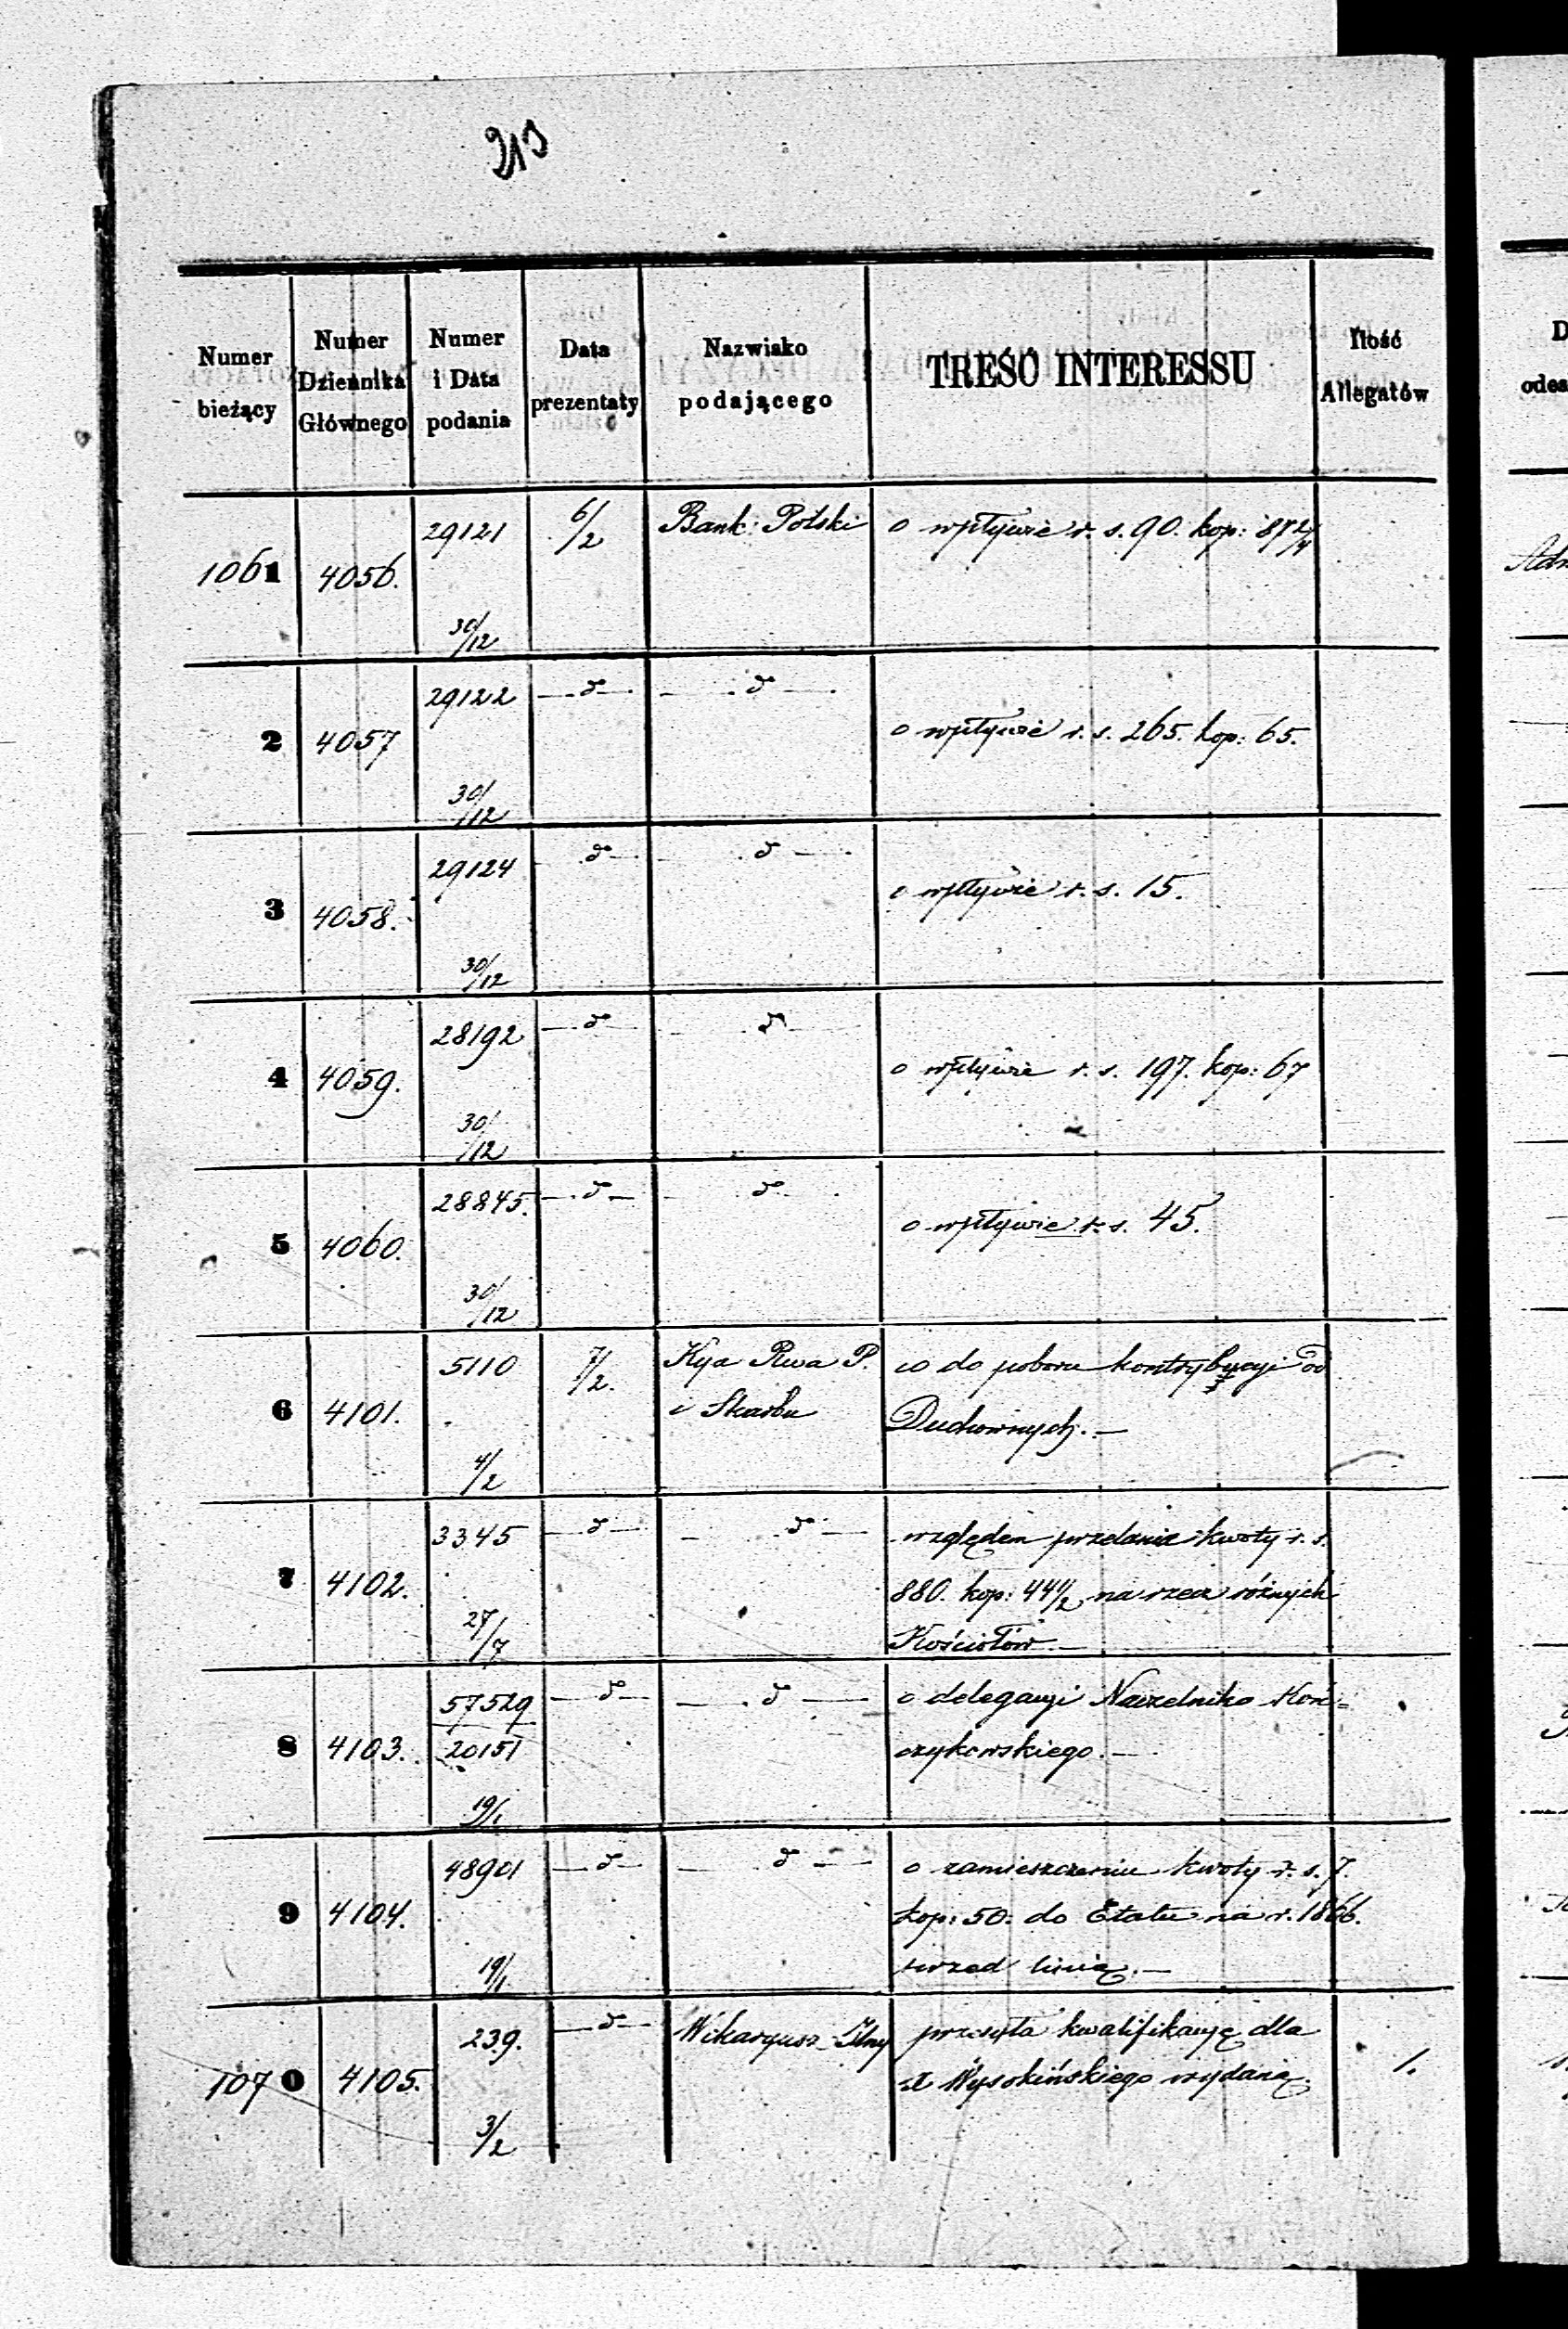 213
Numer bieżący | Numer Dziennika Głównego | Numer i Data podania | Data prezentaty | Nazwisko podającego | TREŚĆ INTERESSU | Ilość Allegatów
1061 | 4056. | 29121 30/12 | 6/2 | Bank Polski | o wpływie r. s. 90. kop: 87 2/4
2 | 4057 | 29122 30/12 | — d° — | — d° — | o wpływie r. s. 265. kop: 65.
3 | 4058. | 29124 30/12 | — d° — | d° — | o wpływie r. s. 15.
4 | 4059. | 28192 30/12 | — d° — | — d° — | o wpływie r. s. 197. kop: 67
5 | 4060. | 28845. 30/12 | — d° — | — d° | o wpływie r. s. 45.
6 | 4101. | 5110 4/2 | 7/2. | Kya Rwa P.
i Skarbu | co do poboru kontrybucyi od
Duchownych. —
7 | 4102. | 3345 27/7 | — d° — | — d° — | względem przelania kwoty r. s.
880. kop: 44 1/2 na rzecz różnych
Kościołów. —
8 | 4103. | 57529 20151 19/1 | — d° — | — d° — | o delegacyi Naczelnika Koń=
czykowskiego. —
9 | 4104. | 48901 19/1 | — d° — | — d° — | o zamieszczeniu kwoty r. s. 7.
kop: 50. do Etatu na r. 1866.
przed linią. —
1070 | 4105. | 239. 3/2 | — d° — | Wikaryusz | przesyła kwalifikacyę dla
X Wysokińskiego wydaną. | 1.